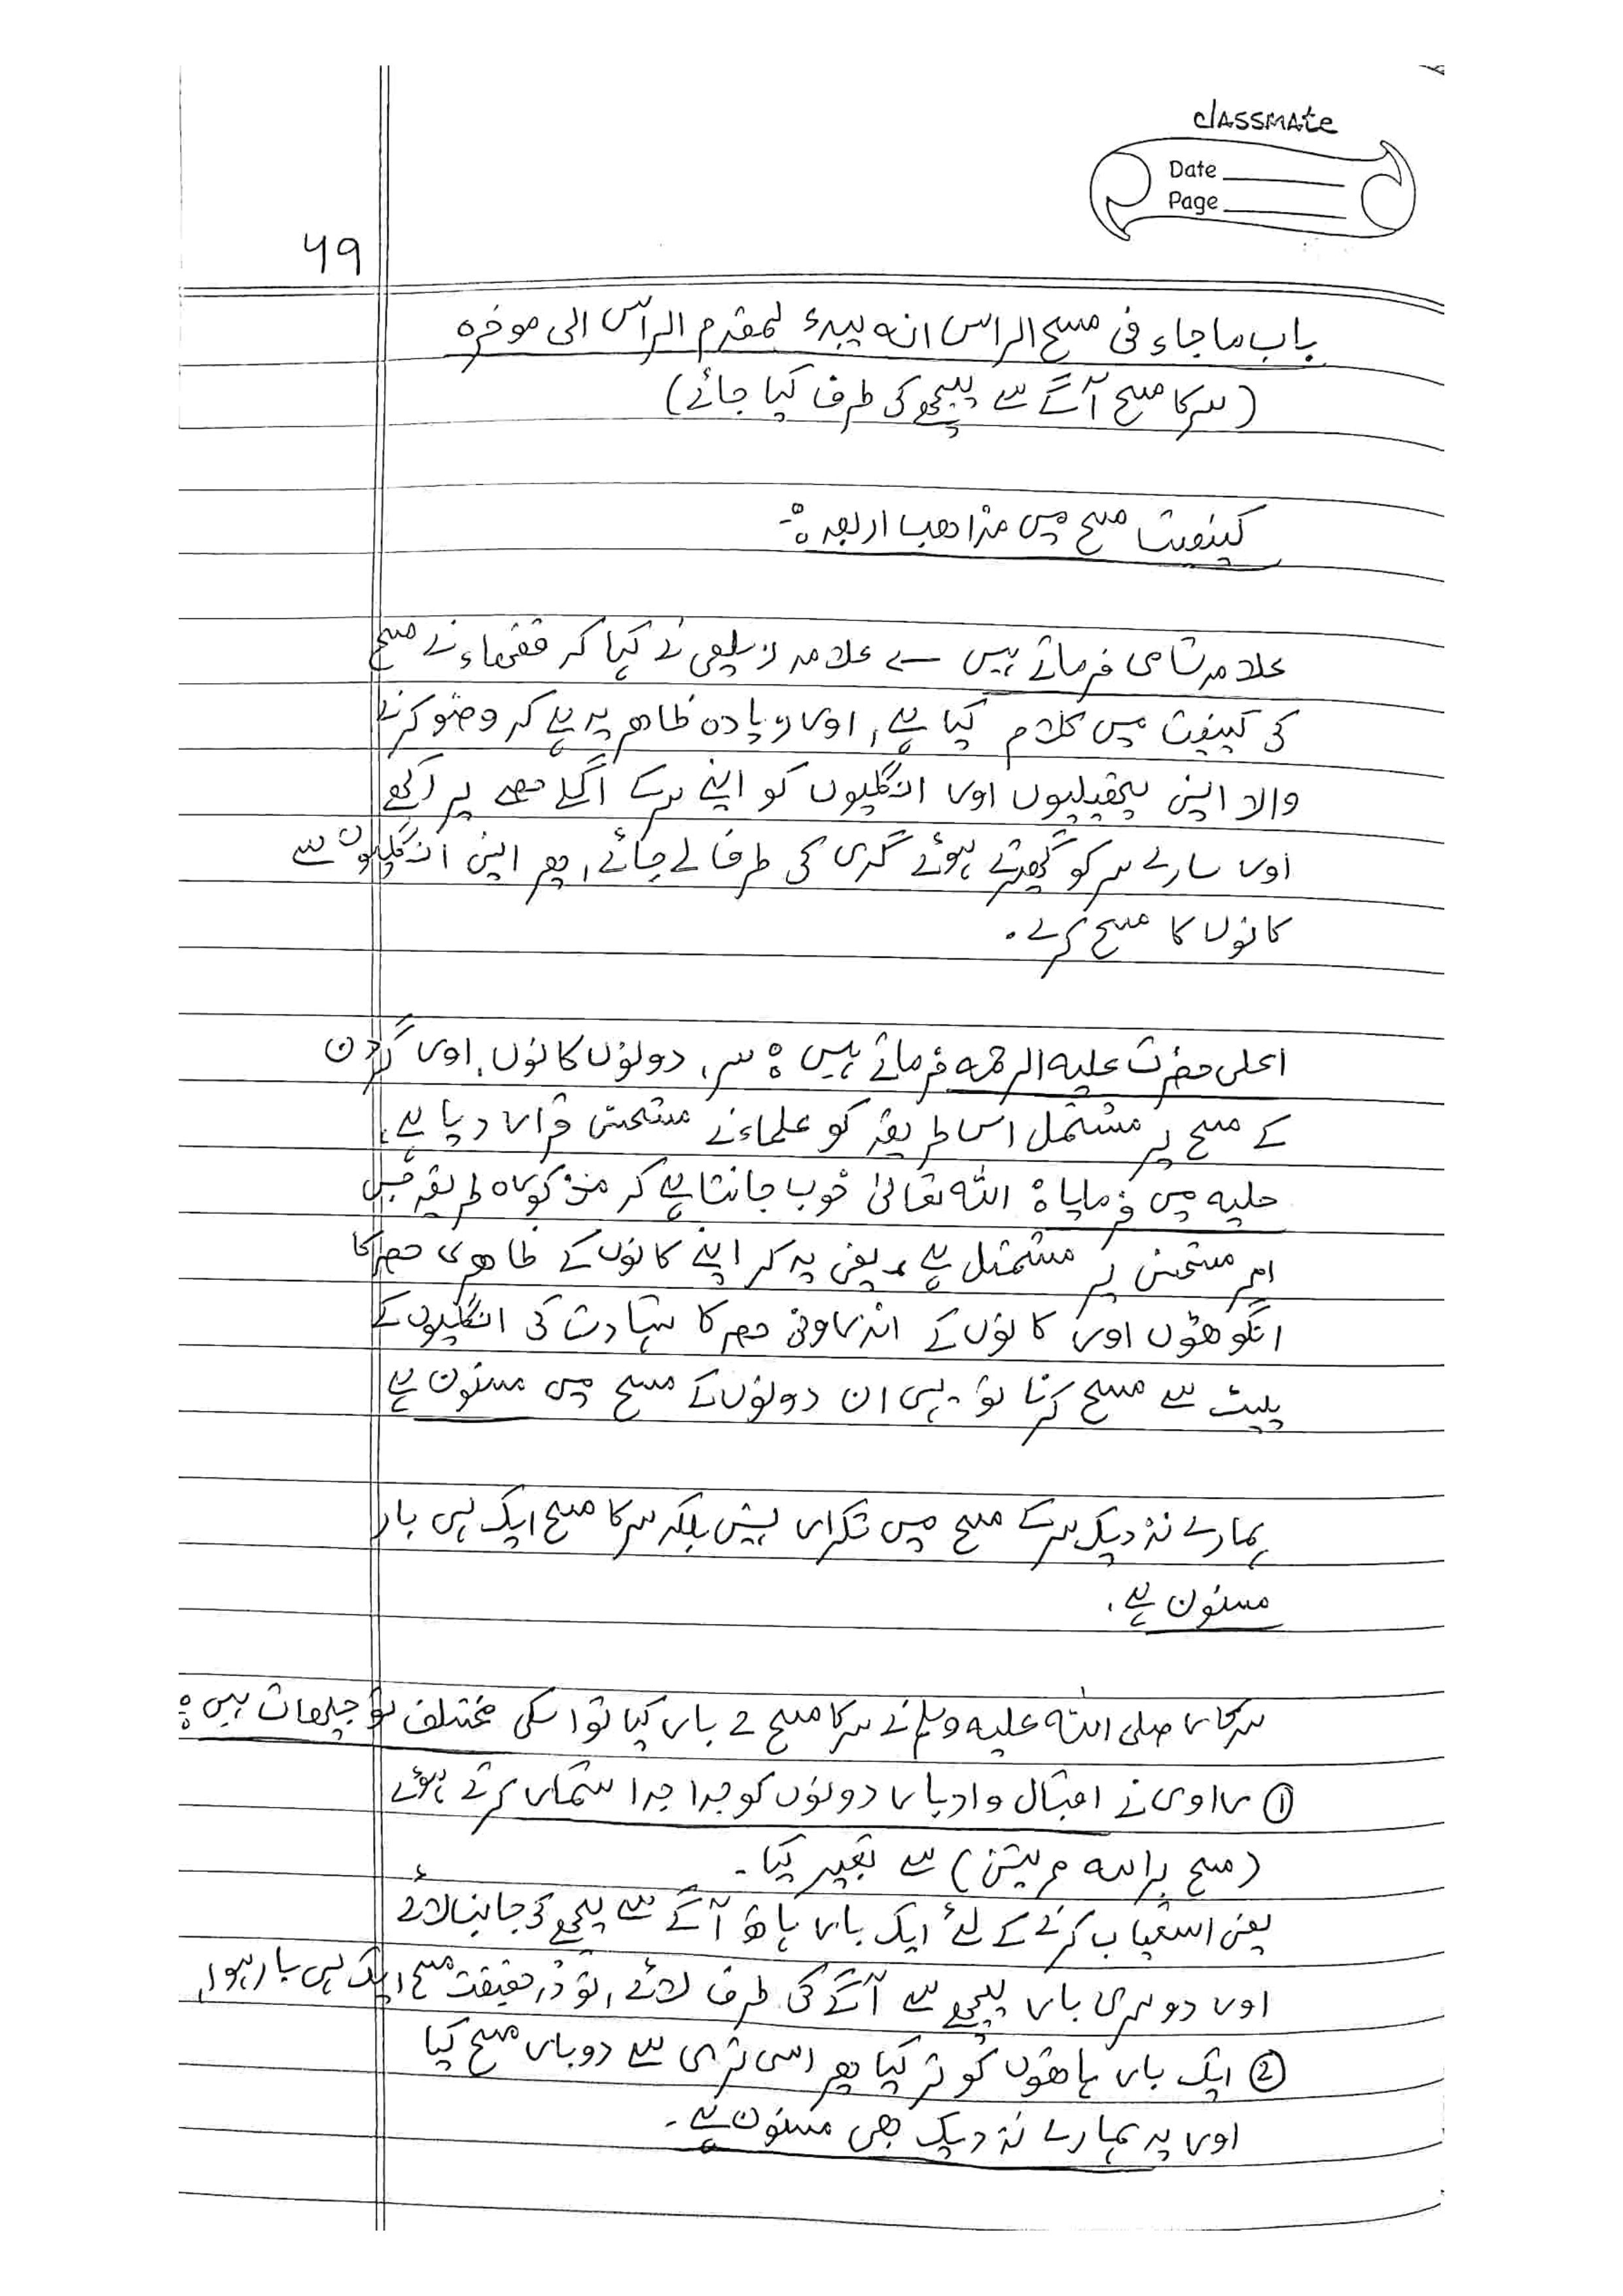 classmate
Date
Page
49
باب ما جاء فی مسح الراس انہ یبدء بمقدم الرأس الی موخرہ
(سر کا مسح آگے سے پیچھے کی طرف کیا جائے)
کیفیت مسح میں مذاھب اربعہ :-
علامہ شامی فرماتے ہیں علامہ زیلعی نے کہا کہ فقھاء نے مسح
کی کیفیت میں کلام کیا ہے، اور زیادہ ظاھر یہ ہے کہ وضو کرنے
والا اپنی ہتھیلیوں اور انگلیوں کو اپنے سر کے اگلے حصے پر رکھے
اور سارے سر کو گھیرتے ہوئے گدی کی طرف لے جائے، پھر اپنی انگلیوں سے
کانوں کا مسح کرے۔
اعلی حضرت علیہ الرحمہ فرماتے ہیں : سر، دونوں کانوں، اور گردن
کے مسح پر مشتمل اس طریقہ کو علماء نے مستحسن قرار دیا ہے،
حلیہ میں فرمایا : اللہ تعالیٰ خوب جانتا ہے کہ مذکورہ طریقہ جس
امر مستحسن پر مشتمل ہے یعنی یہ کہ اپنے کانوں کے ظاھری حصہ کا
انگوھٹوں اور کانوں کے اندرونی حصہ کا شہادت کی انگلیوں کے
پیٹ سے مسح کرنا تو یہی ان دونوں کے مسح میں مسنون ہے
ہمارے نزدیک سر کے مسح میں تکرار نہیں بلکہ سر کا مسح ایک ہی بار
مسنون ہے۔
سرکار صلی اللہ علیہ وسلم نے سر کا مسح 2 بار کیا تو اسکی مختلف توجیھات ہیں :
① راوی نے اقبال و ادبار دونوں کو جدا جدا شمار کرتے ہوئے
(مسح برأسه مرتین) سے تعبیر کیا۔
یعنی استیعاب کرنے کے لئے ایک بار ہاتھ آگے سے پیچھے کی جانب لائے
اور دوسری بار پیچھے سے آگے کی طرف لائے، تو در حقیقت مسح ایک ہی بار ہوا،
② ایک بار ہاتھوں کو تر کیا پھر اسی تری سے دوبار مسح کیا
اور یہ ہمارے نزدیک بھی مسنون ہے۔